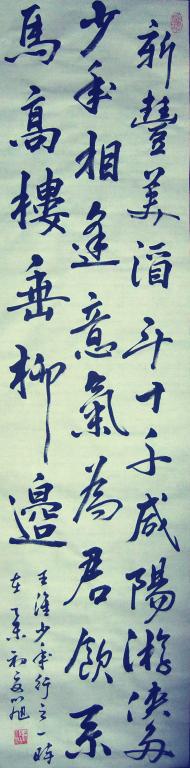 新豐美酒斗十千咸陽游俠多
少年相逢意氣為君飲系
馬高樓垂柳邊
王維少年行之一時
在